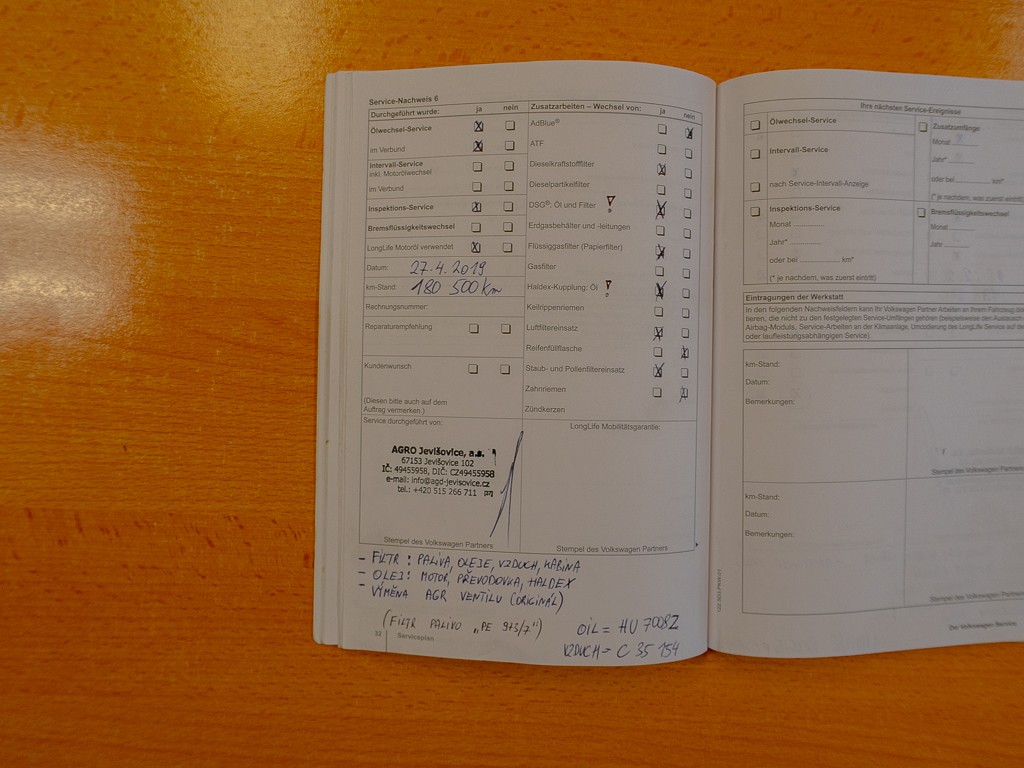 Service-Nachweis 6
Durchgeführt wurde: ja nein
Ölwechsel-Service X
im Verbund X
Intervall-Service
inkl. Motorölwechsel
im Verbund
Inspektions-Service X
Bremsflüssigkeitswechsel
LongLife Motoröl verwendet X
Datum: 27.4.2019
km-Stand: 180 500 km
Rechnungsnummer:
Reparaturempfehlung
Kundenwunsch
(Diesen bitte auch auf dem
Auftrag vermerken.)
Service durchgeführt von:
AGRO Jevišovice, a.s.
67153 Jevišovice 102
IČ: 49455958, DIČ: CZ49455958
e-mail: info@agd-jevisovice.cz
tel.: +420 515 266 711
Stempel des Volkswagen Partners
Zusatzarbeiten – Wechsel von: ja nein
AdBlue® X
ATF
Dieselkraftstofffilter X
Dieselpartikelfilter
DSG®: Öl und Filter X
Erdgasbehälter und -leitungen
Flüssiggasfilter (Papierfilter) X
Gasfilter
Haldex-Kupplung: Öl X
Keilrippenriemen
Luftfiltereinsatz X
Reifenfüllflasche X
Staub- und Pollenfiltereinsatz X
Zahnriemen
Zündkerzen
LongLife Mobilitätsgarantie:
Stempel des Volkswagen Partners
- FILTR : PALIVA, OLEJE, VZDUCH, KABINA
- OLEJ: MOTOR, PŘEVODOVKA, HALDEX
- VÝMĚNA AGR VENTILU (ORIGINÁL)
(FILTR PALIVO „PE 973/7")
OIL = HU 7008Z
VZDUCH = C 35 154
32 Serviceplan
Ihre nächsten Service-Ereignisse
Ölwechsel-Service
Intervall-Service
nach Service-Intervall-Anzeige
Inspektions-Service
Monat
Jahr*
oder bei km*
(* je nachdem, was zuerst eintritt)
Zusatzumfänge
Monat
Jahr*
oder bei km*
(* je nachdem, was zuerst eintritt)
Bremsflüssigkeitswechsel
Monat
Jahr
Eintragungen der Werkstatt
In den folgenden Nachweisfeldern kann Ihr Volkswagen Partner Arbeiten an Ihrem Fahrzeug
tieren, die nicht zu den festgelegten Service-Umfängen gehören (beispielsweise den Austausch
Airbag-Moduls, Service-Arbeiten an der Klimaanlage, Umcodierung des LongLife Service auf
oder laufleistungsabhängigen Service).
km-Stand:
Datum:
Bemerkungen:
Stempel des Volkswagen Partners
km-Stand:
Datum:
Bemerkungen:
Stempel des Volkswagen Partners
Der Volkswagen Service